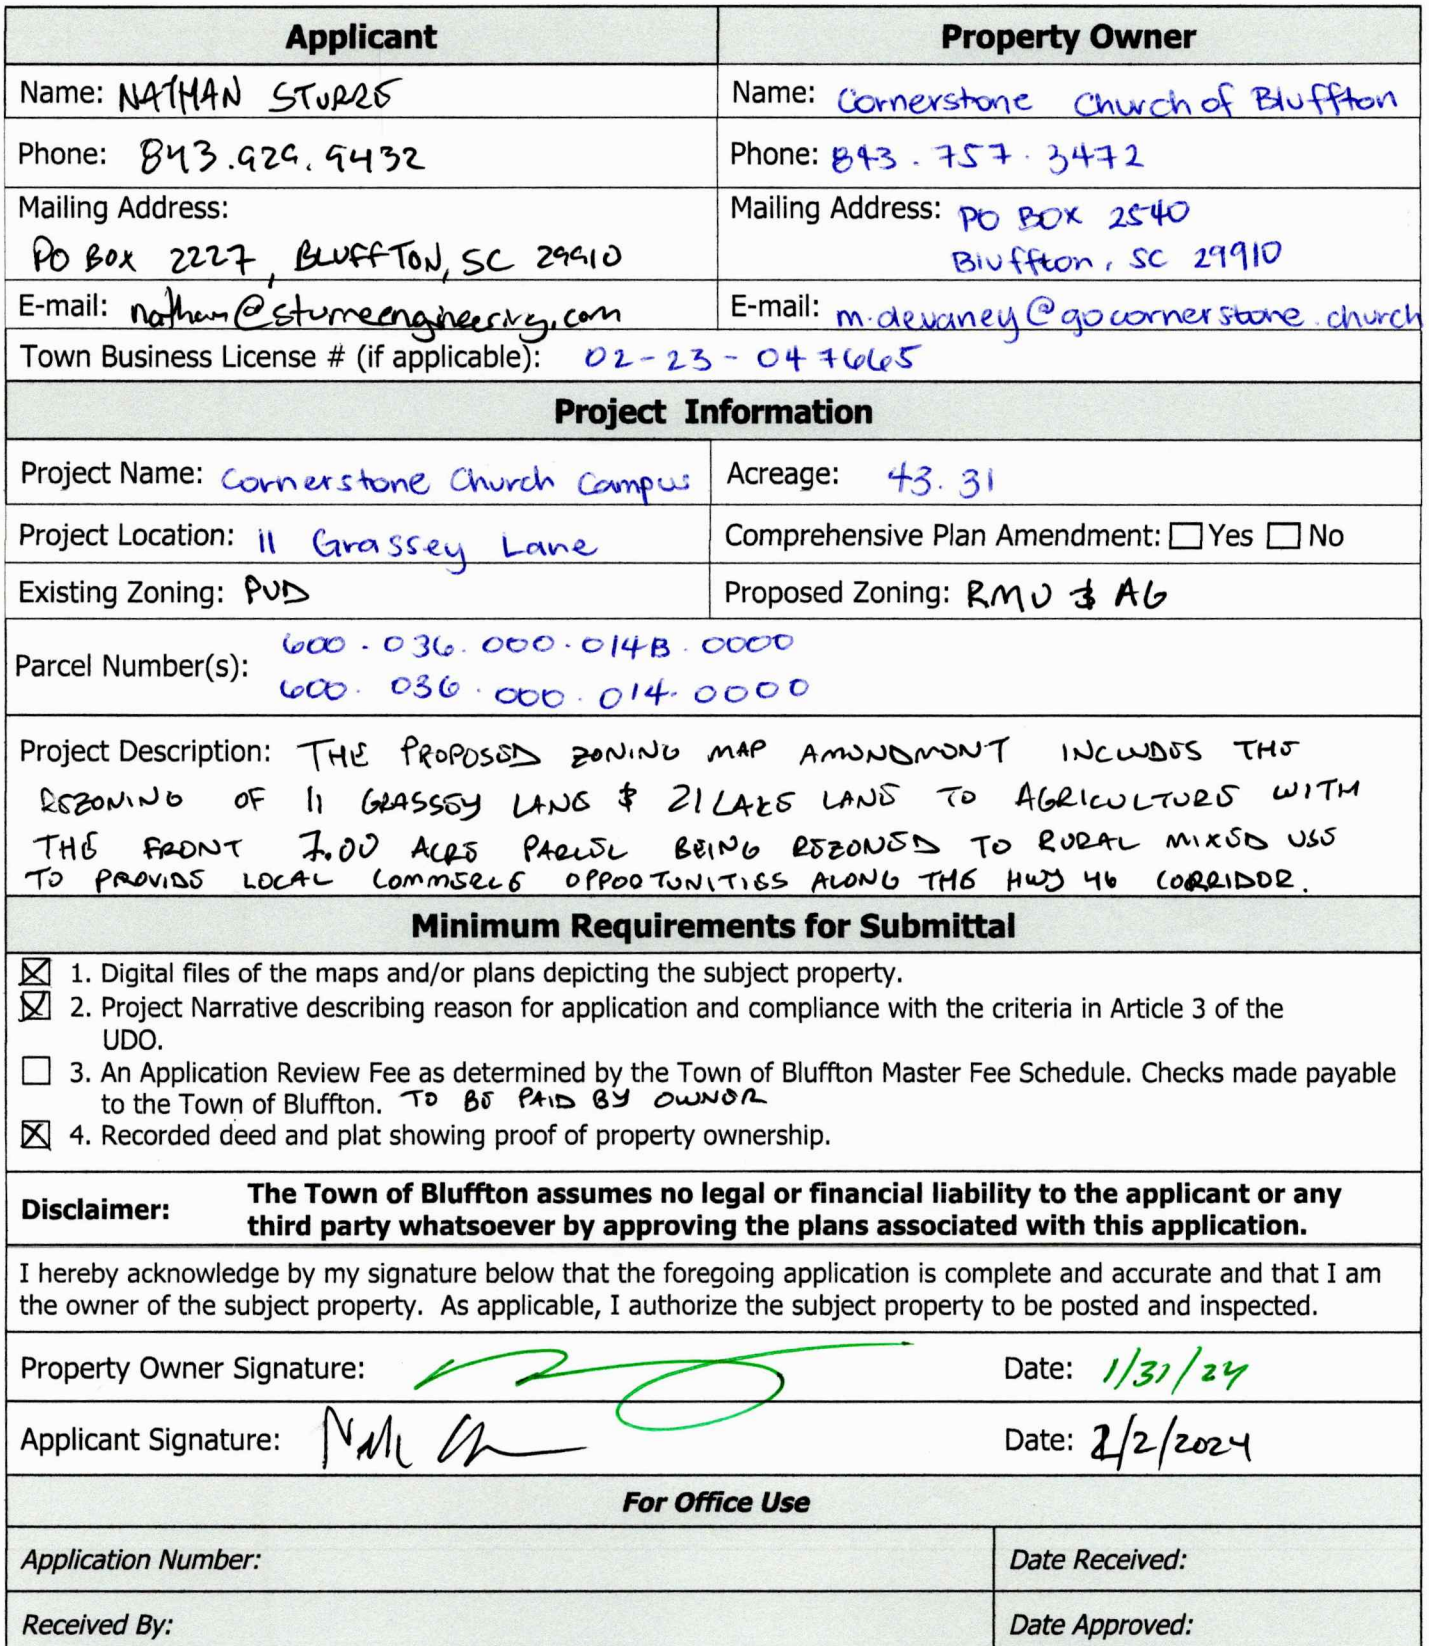 Applicant
Property Owner
Name: NATHAN STURRE
Name: Cornerstone Church of Bluffton
Phone: 843.929.9432
Phone: 843.757.3472
Mailing Address:
PO BOX 2227, BLUFFTON, SC 29910
Mailing Address: PO BOX 2540
Bluffton, SC 29910
E-mail: nathan@sturreengineering.com
E-mail: m.devaney@gocornerstone.church
Town Business License # (if applicable): 02-23-047665
Project Information
Project Name: Cornerstone Church Campus
Acreage: 43.31
Project Location: 11 Grassey Lane
Comprehensive Plan Amendment: ☐ Yes ☐ No
Existing Zoning: PUD
Proposed Zoning: RMU & AG
Parcel Number(s): 600.036.000.014B.0000
600.036.000.014.0000
Project Description: THE PROPOSED ZONING MAP AMENDMENT INCLUDES THE
REZONING OF 11 GRASSEY LANE & 21 LAKE LANE TO AGRICULTURE WITH
THE FRONT 7.00 ACRE PARCEL BEING REZONED TO RURAL MIXED USE
TO PROVIDE LOCAL COMMERCE OPPORTUNITIES ALONG THE HWY 46 CORRIDOR.
Minimum Requirements for Submittal
☒ 1. Digital files of the maps and/or plans depicting the subject property.
☒ 2. Project Narrative describing reason for application and compliance with the criteria in Article 3 of the
UDO.
☐ 3. An Application Review Fee as determined by the Town of Bluffton Master Fee Schedule. Checks made payable
to the Town of Bluffton. TO BE PAID BY OWNER
☒ 4. Recorded deed and plat showing proof of property ownership.
Disclaimer: The Town of Bluffton assumes no legal or financial liability to the applicant or any
third party whatsoever by approving the plans associated with this application.
I hereby acknowledge by my signature below that the foregoing application is complete and accurate and that I am
the owner of the subject property. As applicable, I authorize the subject property to be posted and inspected.
Property Owner Signature:
Date: 1/31/24
Applicant Signature:
Date: 2/2/2024
For Office Use
Application Number:
Date Received:
Received By:
Date Approved: